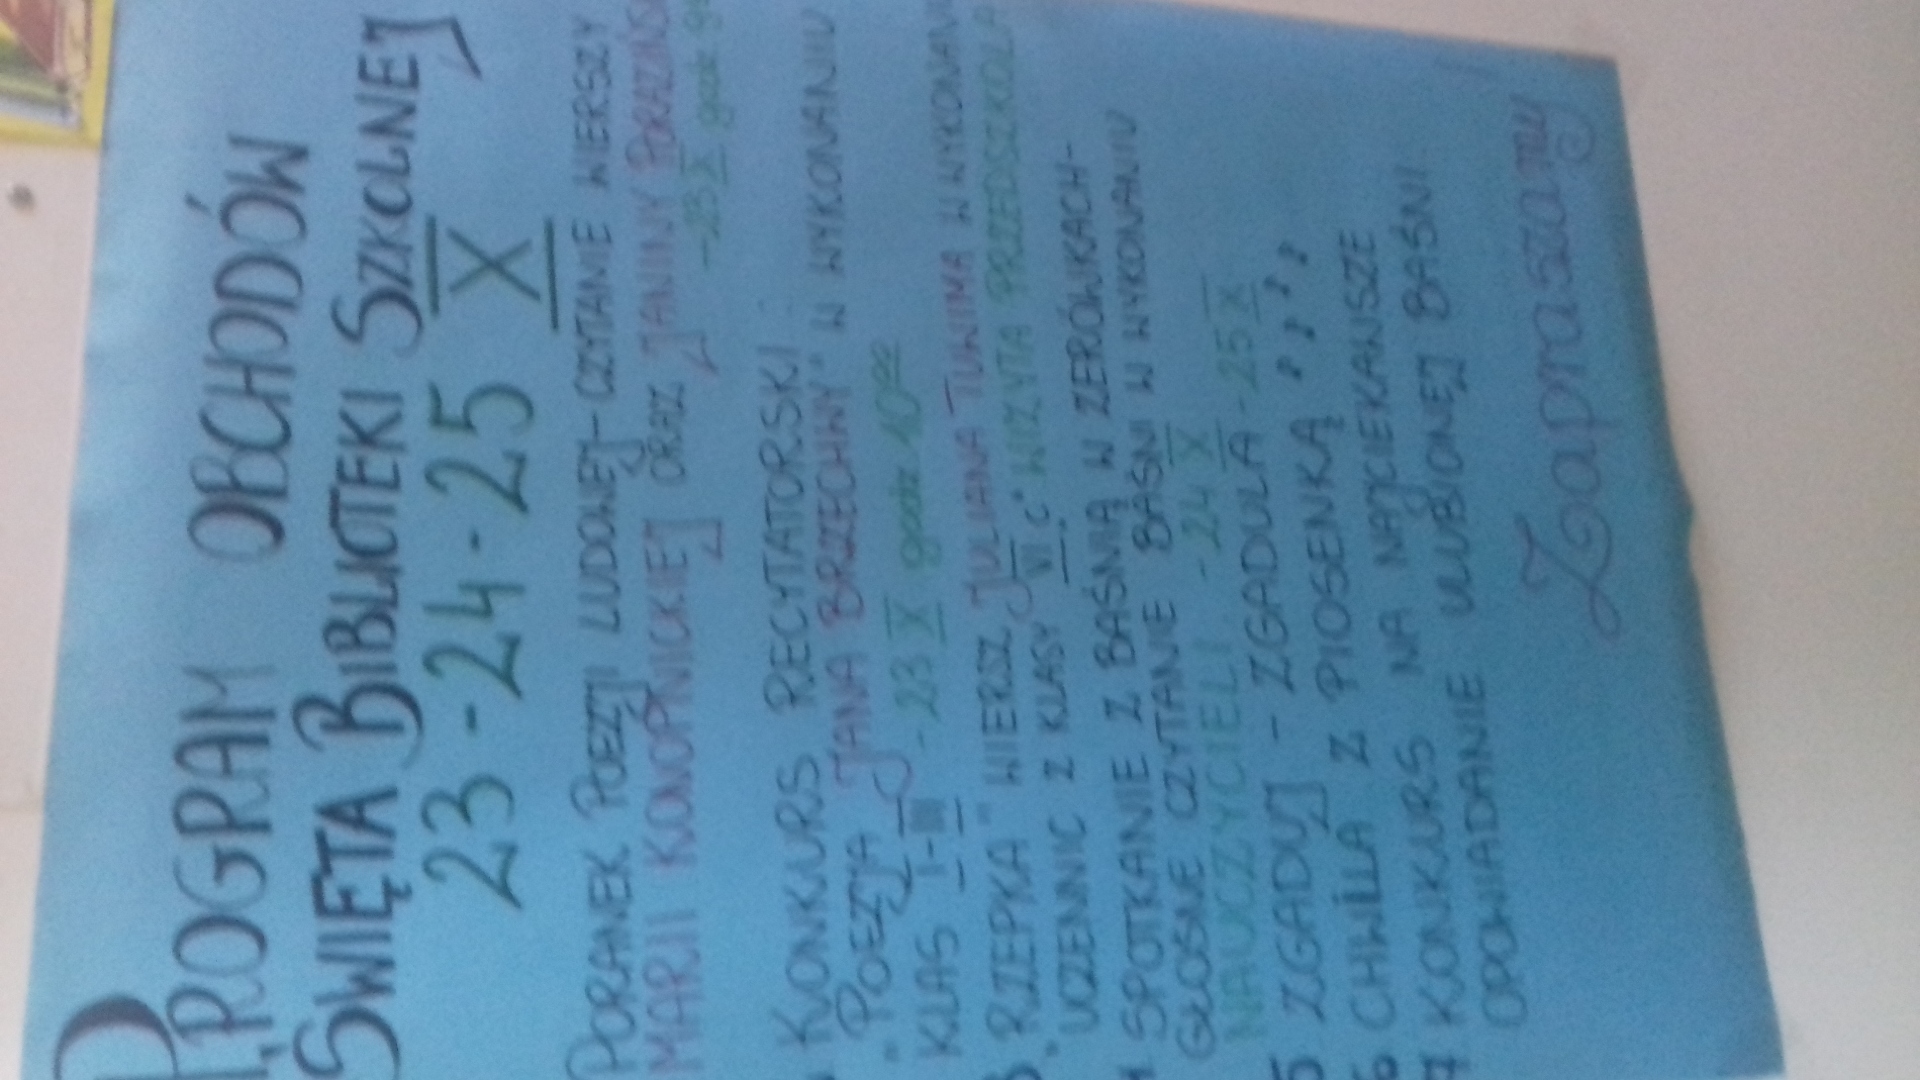 PROGRAM OBCHODÓW
ŚWIĘTA BIBLIOTEKI SZKOLNEJ
23-24-25 X
PORANEK POEZJI LUDOWEJ-CZYTANIE WIERSZY
MARII KONOPNICKIEJ ORAZ JANINY
-23 X godz
KONKURS RECYTATORSKI:
"POEZJA JANA BRZECHWY" W WYKONANIU
KLAS I-III - 23 X godz 10⁰⁰
"RZEPKA" WIERSZ JULIANA TUWIMA W WYKONANIU
UCZENNIC Z KLASY "VI C" WIZYTA PRZEDSZKOLA
4 SPOTKANIE Z BAŚNIĄ W ZERÓWKACH-
GŁOŚNE CZYTANIE BAŚNI W WYKONANIU
NAUCZYCIELI -24 X
5 ZGADUJ - ZGADULA -25 X
6 CHWILA Z PIOSENKĄ
7 KONKURS NA NAJCIEKAWSZE
OPOWIADANIE ULUBIONEJ BAŚNI
Zapraszamy